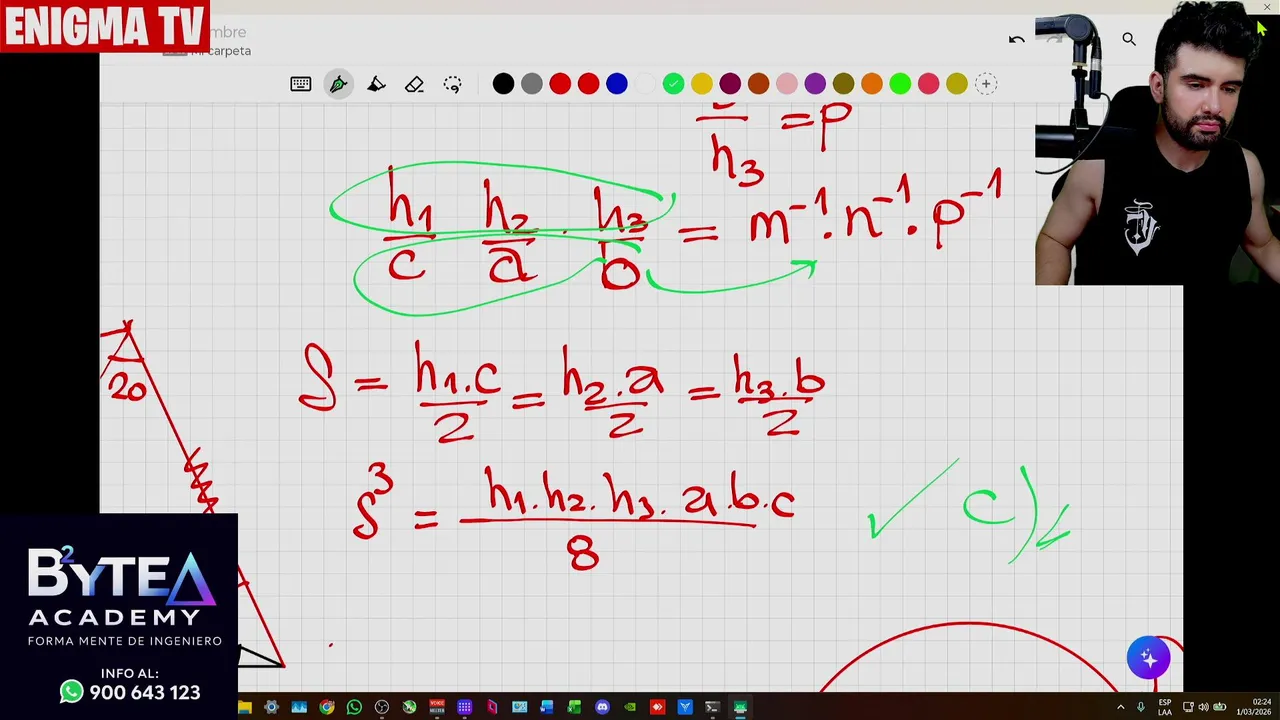 ENIGMA TV
mbre
carpeta
h3 = p
h1/c h2/a . h3/b = m^-1 . n^-1 . p^-1
20
S = h1.c/2 = h2.a/2 = h3.b/2
S^3 = h1.h2.h3.a.b.c/8
✓ c)
B²YTE
ACADEMY
FORMA MENTE DE INGENIERO
INFO AL:
900 643 123
ESP
LAA
02:24
1/03/2026